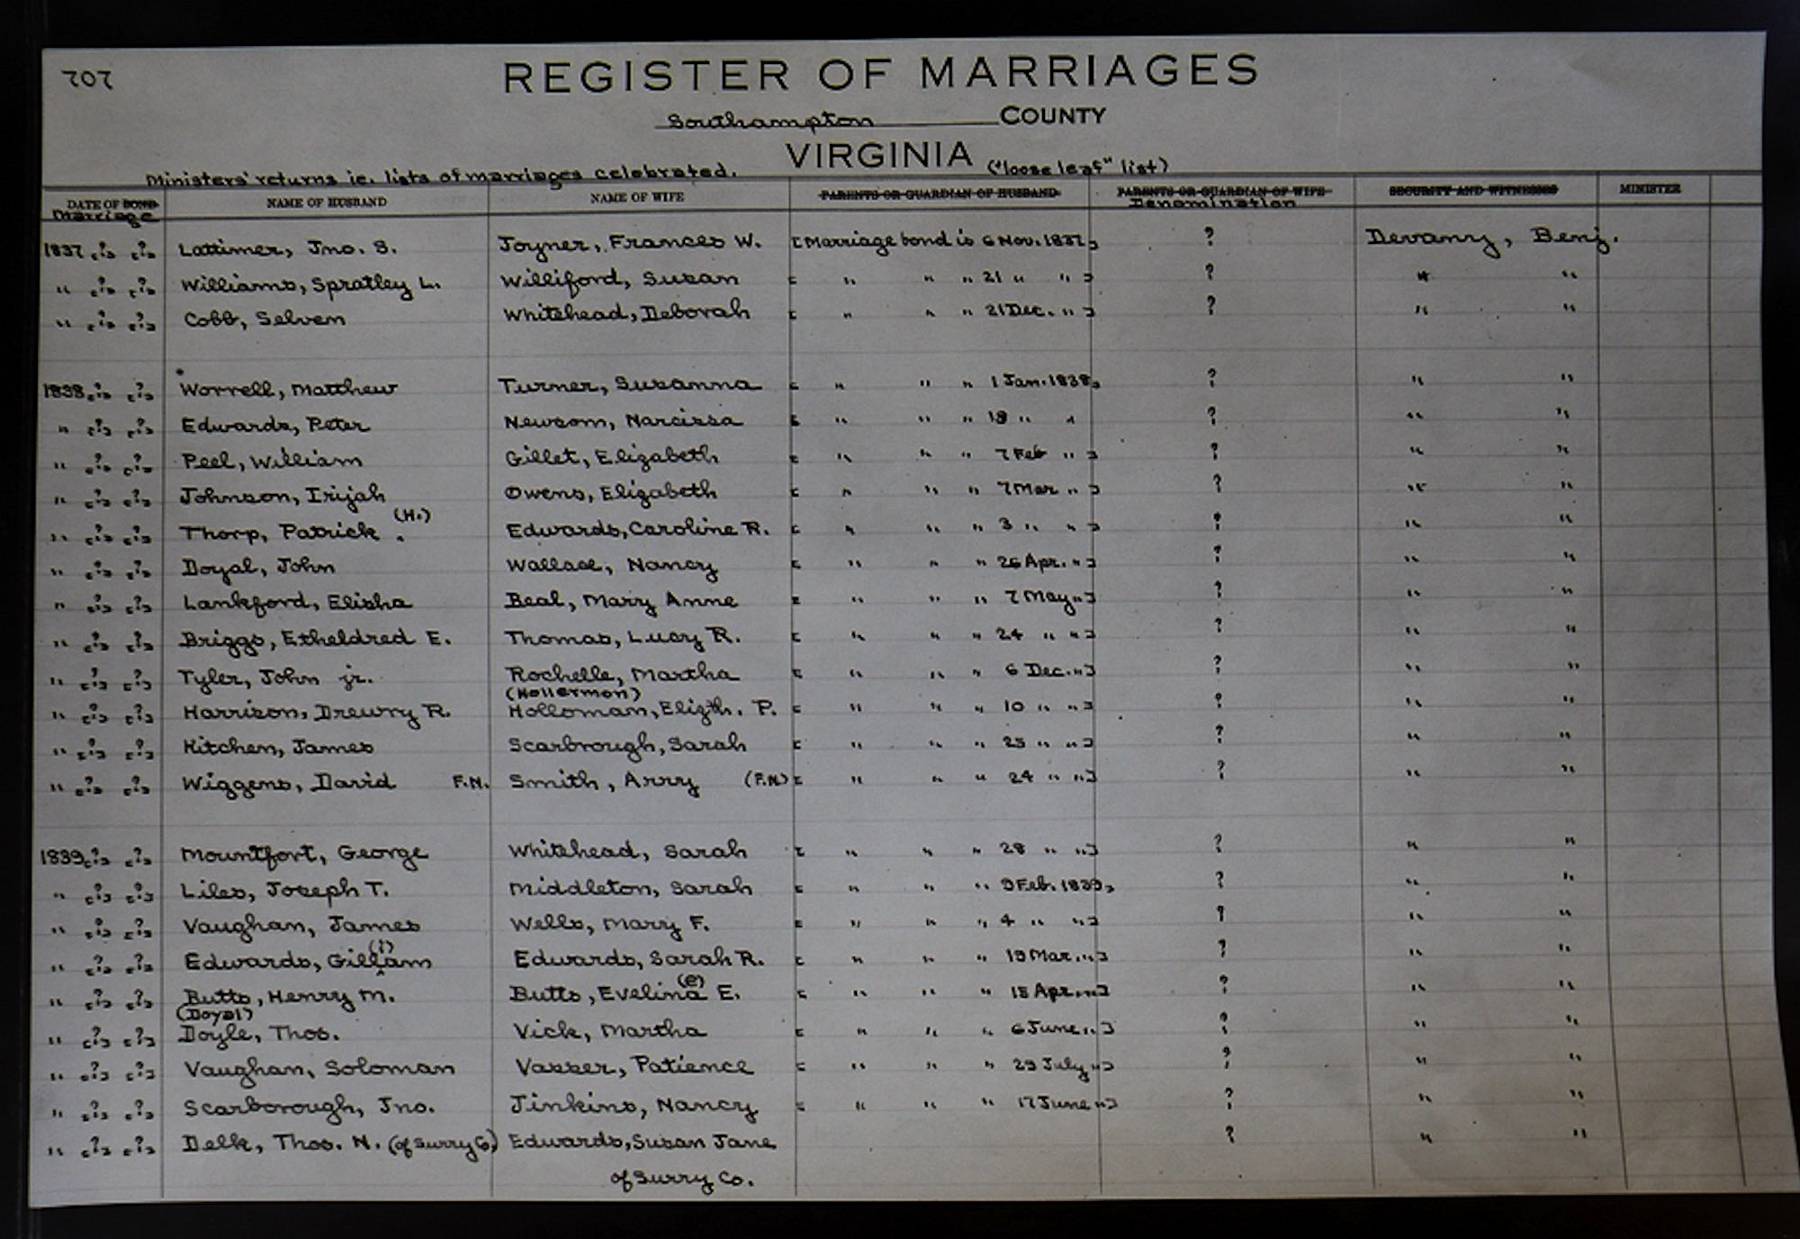 707
REGISTER OF MARRIAGES
Southampton COUNTY
VIRGINIA ("loose leaf" list)
Ministers' returns ie. lists of marriages celebrated.
DATE OF BOND NAME OF HUSBAND NAME OF WIFE PARENTS OR GUARDIAN OF HUSBAND PARENTS OR GUARDIAN OF WIFE SECURITY AND WITNESSES MINISTER
Marriage Denomination
1837 [?] [?] Lattimer, Jno. S. Joyner, Frances W. [Marriage bond is 6 Nov. 1837] ? Devanny, Benj.
" [?] [?] Williams, Spratley L. Williford, Susan [ " " " 21 " " ] ? " "
" [?] [?] Cobb, Selven Whitehead, Deborah [ " " " 21 Dec. " ] ? " "
1838 [?] [?] Worrell, Matthew Turner, Susanna [ " " " 1 Jan. 1838] ? " "
" [?] [?] Edwards, Peter Newsom, Narcissa [ " " " 18 " " ? " "
" [?] [?] Peel, William Gillet, Elizabeth [ " " " 7 Feb " ] ? " "
" [?] [?] Johnson, Irijah Owens, Elizabeth [ " " " 7 Mar " ] ? " "
" [?] [?] Thorp, Patrick (H.). Edwards, Caroline R. [ " " " 3 " " ] ? " "
" [?] [?] Doyal, John Wallace, Nancy [ " " " 26 Apr. " ] ? " "
" [?] [?] Lankford, Elisha Beal, Mary Anne [ " " " 7 May " ] ? " "
" [?] [?] Briggs, Etheldred E. Thomas, Lucy R. [ " " " 24 " " ] ? " "
" [?] [?] Tyler, John jr. Rochelle, Martha [ " " " 6 Dec. " ] ? " "
(Hollermon)
" [?] [?] Harrison, Drewry R. Holloman, Elizth. P. [ " " " 10 " " ] ? " "
" [?] [?] Kitchen, James Scarbrough, Sarah [ " " " 25 " " ] ? " "
" [?] [?] Wiggens, David F.N. Smith, Arry (F.N) [ " " " 24 " " ] ? " "
1839 [?] [?] Mountfort, George Whitehead, Sarah [ " " " 28 " " ] ? " "
" [?] [?] Liles, Joseph T. Middleton, Sarah [ " " " 9 Feb. 1839] ? " "
" [?] [?] Vaughan, James Wells, Mary F. [ " " " 4 " " ] ? " "
" [?] [?] Edwards, Gill(i)am Edwards, Sarah R. [ " " " 19 Mar. " ] ? " "
" [?] [?] Butts, Henry M. Butts, Evelina (e) E. [ " " " 18 Apr. " ] ? " "
(Doyal)
" [?] [?] Doyle, Thos. Vick, Martha [ " " " 6 June " ] ? " "
" [?] [?] Vaughan, Soloman Vasser, Patience [ " " " 29 July " ] ? " "
" [?] [?] Scarborough, Jno. Jinkins, Nancy [ " " " 17 June " ] ? " "
" [?] [?] Delk, Thos. N. (of Surry Co) Edwards, Susan Jane ? " "
of Surry Co.